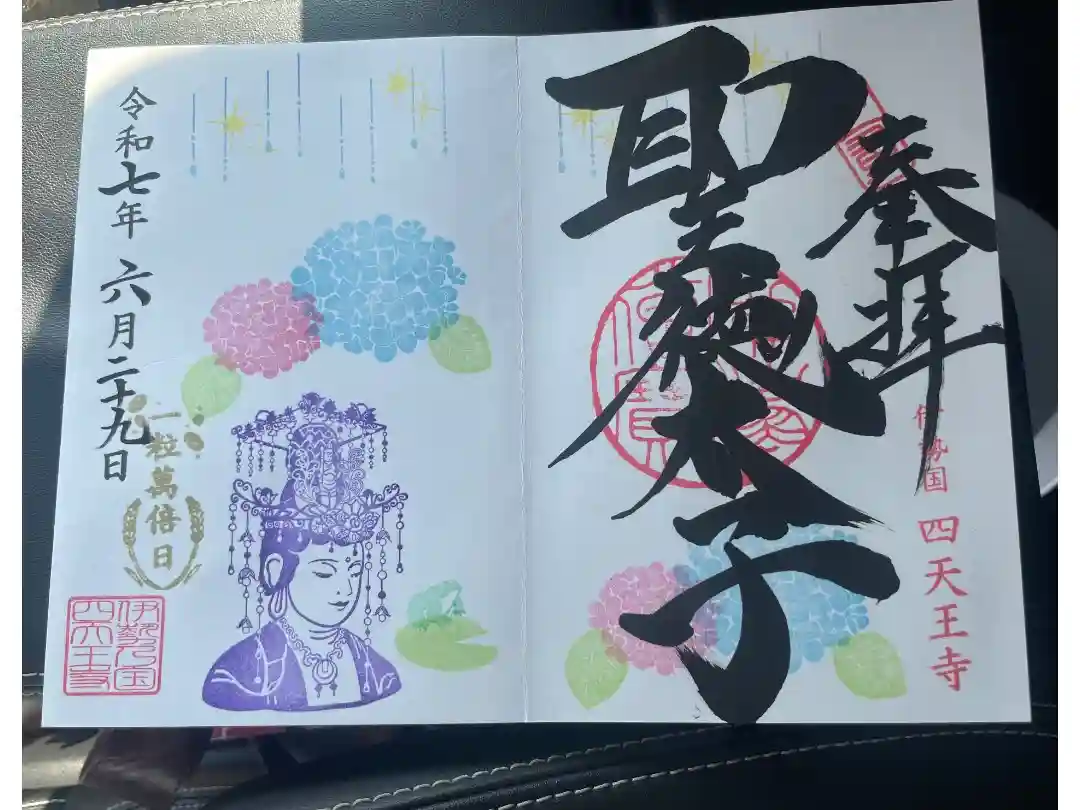 奉拝
聖徳太子
伊勢国 四天王寺
令和七年 六月二十九日
一粒萬倍日
伊勢乃国
四天王寺